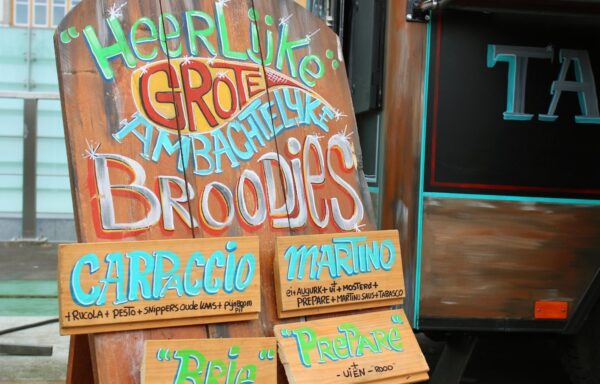 "Heerlijke
GROTE
AMBACHTELIJKE
BROODJES
CARPACCIO
+ RUCOLA + PESTO + SNIPPERS OUDE KAAS + PIJNBOOM
PIT
MARTINO
ei + AUGURK + UI + MOSTERD +
PREPARE + MARTINO SAUS + TABASCO
"Brie"
"PREPARÉ"
+
- UIEN -
TA